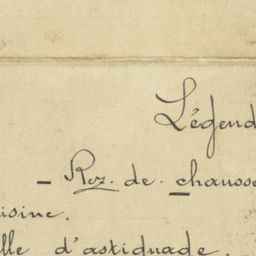 Légend
- Rez. de. chaussé
isine.
lle d'astiquage.